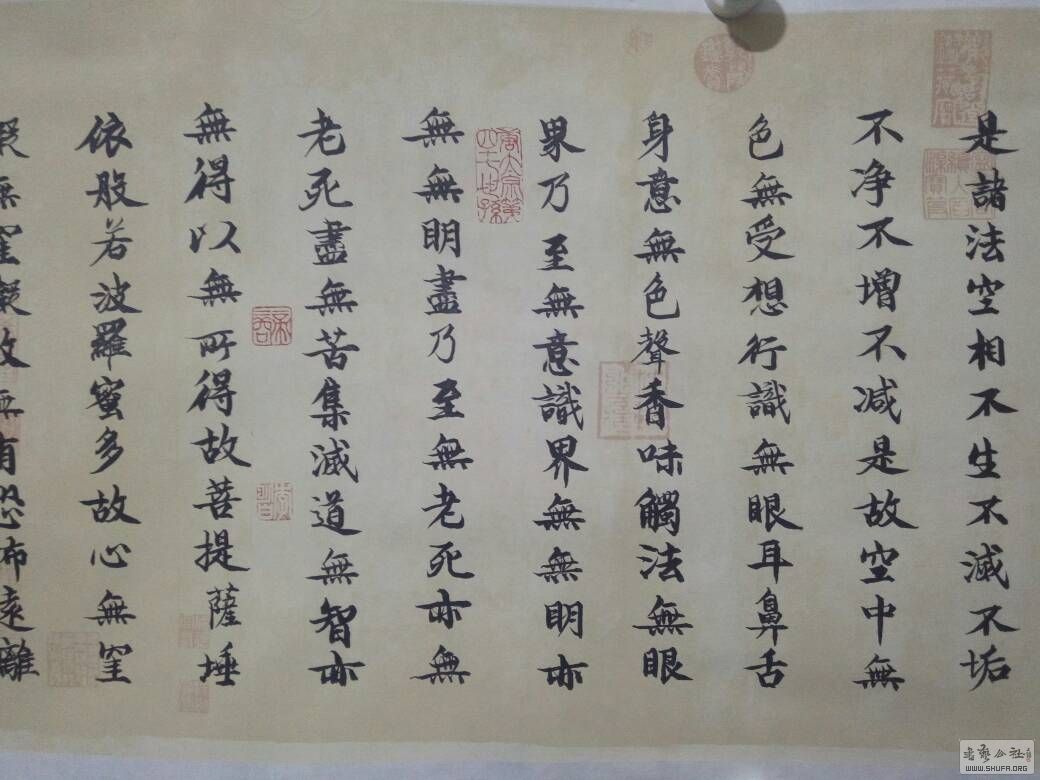 是諸法空相不生不滅不垢
不净不增不减是故空中無
色無受想行識無眼耳鼻舌
身意無色聲香味觸法無眼
界乃至無意識界無無明亦
無無明盡乃至無老死亦無
老死盡無苦集滅道無智亦
無得以無所得故菩提薩埵
依般若波羅蜜多故心無罣
礙無罣礙故無有恐怖遠離
WWW.SHUFA.ORG